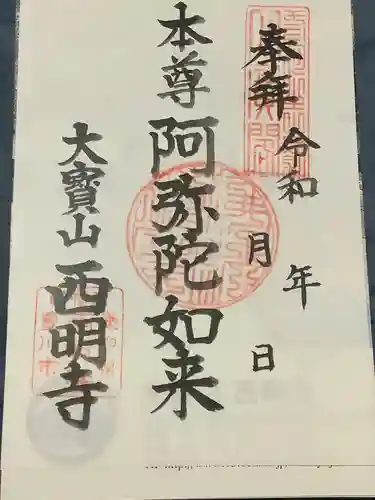 奉拝
令和 年 月 日
本尊 阿弥陀如来
大寳山 西明寺